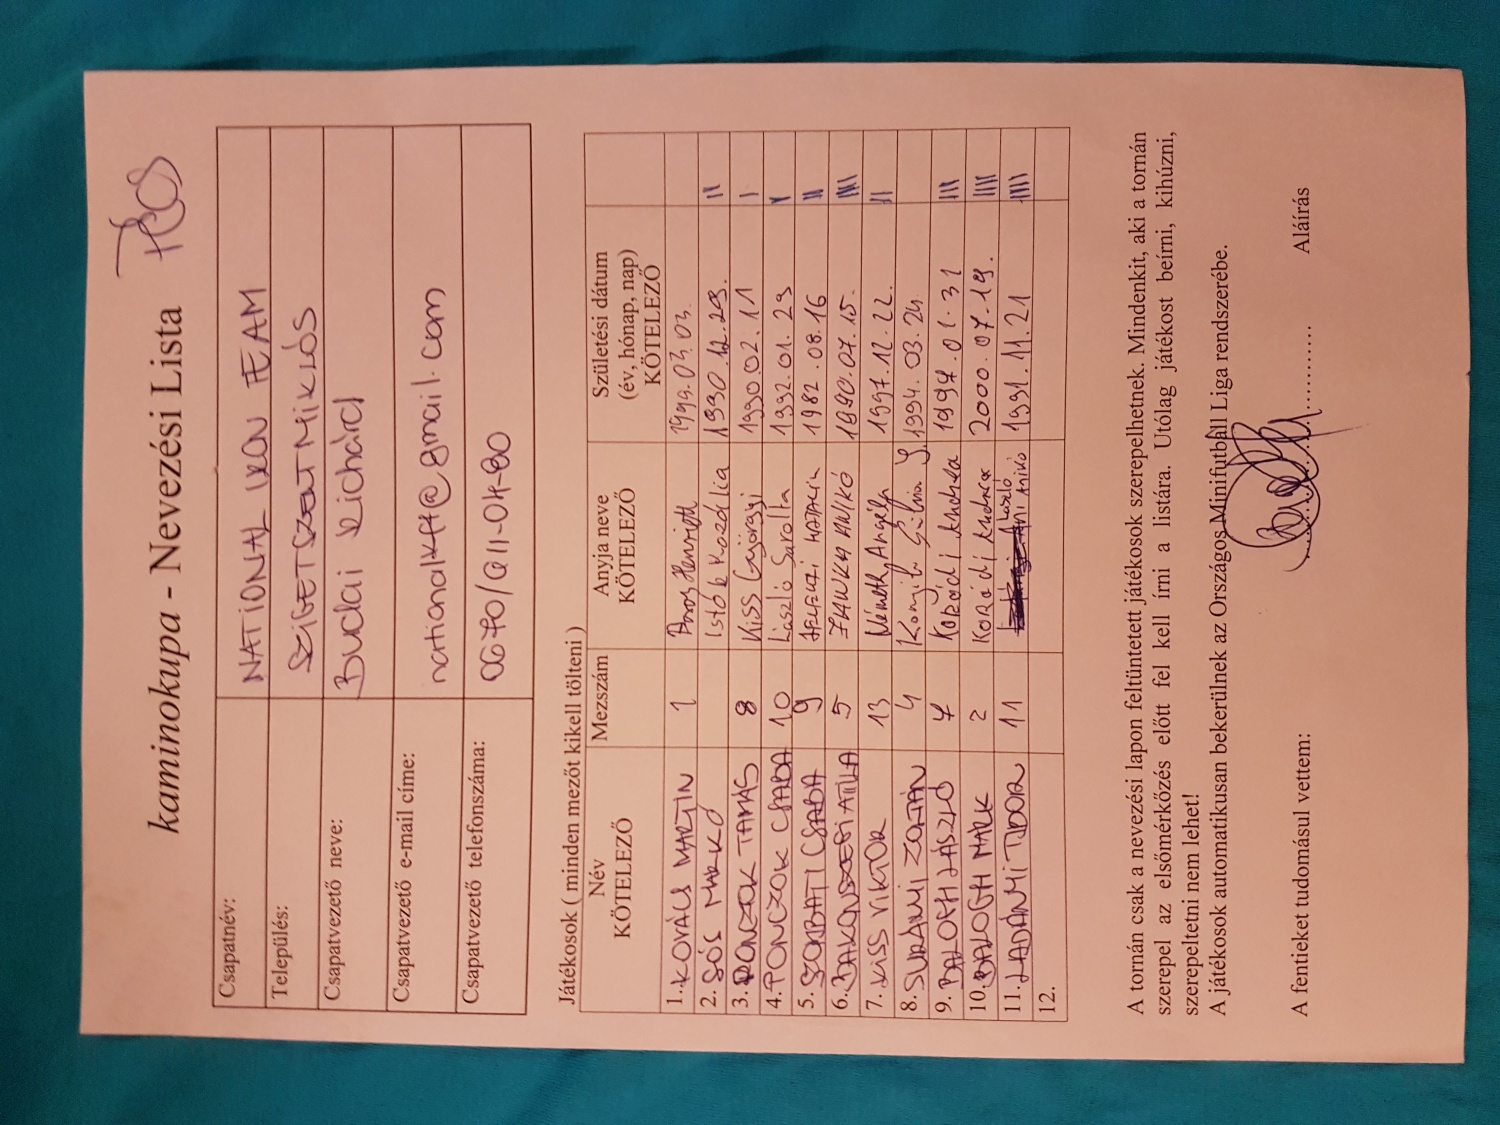 kaminokupa - Nevezési Lista
Csapatnév: NATIONAL TEAM
Település: SZIGETSZENTMIKLÓS
Csapatvezető neve: Budai Richárd
Csapatvezető e-mail címe: nationalkft@gmail.com
Csapatvezető telefonszáma:
Játékosok ( minden mezőt kikell tölteni )
Név KÖTELEZŐ Mezszám Anyja neve KÖTELEZŐ Születési dátum (év, hónap, nap) KÖTELEZŐ
1. KOVÁCS MARTIN 1 Henriett 1999.03.03.
2. SÓS MARKÓ Istók Rozália 1990.12.29. II
3. PONCZÓK TAMÁS 8 Kiss Györgyi 1990.02.11 I
4. PONCZÓK CSABA 10 László Sarolta 1992.01.29
5. SZOMBATI CSABA 9 KATALIN 1982.08.16 III
6. ATTILA 5 ILDIKÓ 1990.07.15.
7. KISS VIKTOR 13 Németh Angéla 1997.12.22. II
8. ZOLTÁN 4 1994.03.24
9. BALOGH LÁSZLÓ 7 Korádi Andrea 1997.01.31 III
10. BALOGH MARK 2 Korádi Andrea 2000.07.19. IIII
11. TIBOR 11 László Anikó 1991.11.21 IIII
12.
A tornán csak a nevezési lapon feltüntetett játékosok szerepelhetnek. Mindenkit, aki a tornán
szerepel az elsőmérkőzés előtt fel kell írni a listára. Utólag játékost beírni, kihúzni,
szerepeltetni nem lehet!
A játékosok automatikusan bekerülnek az Országos Minifutball Liga rendszerébe.
A fentieket tudomásul vettem: Aláírás